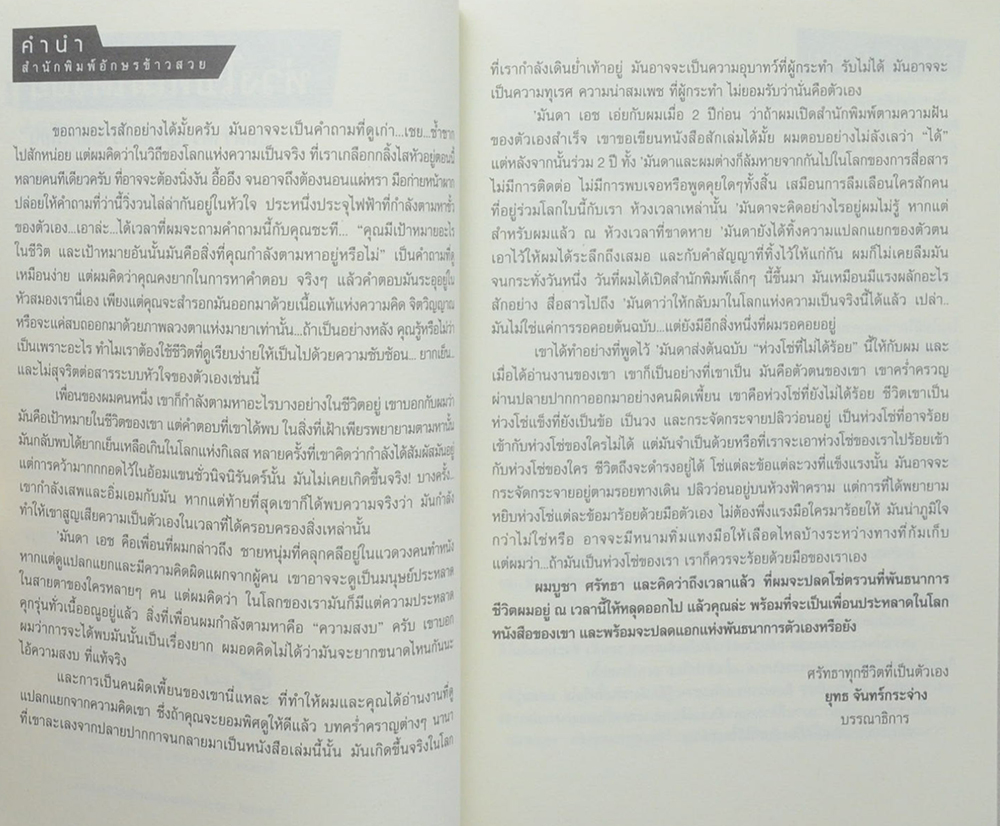 คำนำ
สำนักพิมพ์อักษรข้าวสวย
ขอถามอะไรสักอย่างได้มั้ยครับ มันอาจจะเป็นคำถามที่ดูเก่า...เชย...ซ้ำซาก
ไปสักหน่อย แต่ผมคิดว่าในวิถีของโลกแห่งความเป็นจริง ที่เราเกลือกกลิ้งไสหัวอยู่ตอนนี้
หลายคนทีเดียวครับ ที่อาจจะต้องนิ่งงัน อึ้ออึง จนอาจถึงต้องนอนแผ่หรา มือก่ายหน้าผาก
ปล่อยให้คำถามที่ว่านี้วิ่งวนไล่ล่ากันอยู่ในหัวใจ ประหนึ่งประจุไฟฟ้าที่กำลังตามหาขั้ว
ของตัวเอง...เอาล่ะ...ได้เวลาที่ผมจะถามคำถามนี้กับคุณซะที... “คุณมีเป้าหมายอะไร
ในชีวิต และเป้าหมายอันนั้นมันคือสิ่งที่คุณกำลังตามหาอยู่หรือไม่” เป็นคำถามที่ดู
เหมือนง่าย แต่ผมคิดว่าคุณคงยากในการหาคำตอบ จริงๆ แล้วคำตอบมันระอุอยู่ใน
ห้วงสมองเรานี่เอง เพียงแต่คุณจะสำรอกมันออกมาด้วยเนื้อแท้แห่งความคิด จิตวิญญาณ
หรือจะแค่สบถออกมาด้วยภาพลวงตาแห่งมายาเท่านั้น...ถ้าเป็นอย่างหลัง คุณรู้หรือไม่ว่า
เป็นเพราะอะไร ทำไมเราต้องใช้ชีวิตที่ดูเรียบง่ายให้เป็นไปด้วยความซับซ้อน... ยากเย็น...
และไม่สุจริตต่อสารระบบหัวใจของตัวเองเช่นนี้
เพื่อนของผมคนหนึ่ง เขาก็กำลังตามหาอะไรบางอย่างในชีวิตอยู่ เขาบอกกับผมว่า
มันคือเป้าหมายในชีวิตของเขา แต่คำตอบที่เขาได้พบ ในสิ่งที่เฝ้าเพียรพยายามตามหานั้น
มันกลับพบได้ยากเย็นเหลือเกินในโลกแห่งกิเลส หลายครั้งที่เขาคิดว่ากำลังได้สัมผัสมันอยู่
แต่การคว้ามากกกอดไว้ในอ้อมแขนชั่วนิจนิรันดร์นั้น มันไม่เคยเกิดขึ้นจริง! บางครั้ง...
เขากำลังเสพและอิ่มเอมกับมัน หากแต่ท้ายที่สุดเขาก็ได้พบความจริงว่า มันกำลัง
ทำให้เขาสูญเสียความเป็นตัวเองในเวลาที่ได้ครอบครองสิ่งเหล่านั้น
'มันดา เอช คือเพื่อนที่ผมกล่าวถึง ชายหนุ่มที่คลุกคลีอยู่ในแวดวงคนทำหนัง
หากแต่ดูแปลกแยกและมีความคิดผิดแผกจากผู้คน เขาอาจจะดูเป็นมนุษย์ประหลาด
ในสายตาของใครหลายๆ คน แต่ผมคิดว่า ในโลกของเรามันก็มีแต่ความประหลาด
คุกรุ่นทั่วเนื้ออณูอยู่แล้ว สิ่งที่เพื่อนผมกำลังตามหาคือ “ความสงบ” ครับ เขาบอก
ผมว่าการจะได้พบมันนั้นเป็นเรื่องยาก ผมอดคิดไม่ได้ว่ามันจะยากขนาดไหนกันนะ
ไอ้ความสงบ ที่แท้จริง
และการเป็นคนผิดเพี้ยนของเขานี่แหละ ที่ทำให้ผมและคุณได้อ่านงานที่ดู
แปลกแยกจากความคิดเขา ซึ่งถ้าคุณจะยอมพิศดูให้ดีแล้ว บทคร่ำคราญต่างๆ นานา
ที่เขาละเลงจากปลายปากกาจนกลายมาเป็นหนังสือเล่มนี้นั้น มันเกิดขึ้นจริงในโลก
ที่เรากำลังเดินย่ำเท้าอยู่ มันอาจจะเป็นความอุบาทว์ที่ผู้กระทำ รับไม่ได้ มันอาจจะ
เป็นความทุเรศ ความน่าสมเพช ที่ผู้กระทำ ไม่ยอมรับว่านั่นคือตัวเอง
'มันดา เอช เอ่ยกับผมเมื่อ 2 ปีก่อน ว่าถ้าผมเปิดสำนักพิมพ์ตามความฝัน
ของตัวเองสำเร็จ เขาขอเขียนหนังสือสักเล่มได้มั้ย ผมตอบอย่างไม่ลังเลว่า “ได้”
แต่หลังจากนั้นร่วม 2 ปี ทั้ง 'มันดาและผมต่างก็ล้มหายจากกันไปในโลกของการสื่อสาร
ไม่มีการติดต่อ ไม่มีการพบเจอหรือพูดคุยใดๆทั้งสิ้น เสมือนการลืมเลือนใครสักคน
ที่อยู่ร่วมโลกใบนี้กับเรา ห้วงเวลาเหล่านั้น 'มันดาจะคิดอย่างไรอยู่ผมไม่รู้ หากแต่
สำหรับผมแล้ว ณ ห้วงเวลาที่ขาดหาย 'มันดายังได้ทิ้งความแปลกแยกของตัวตน
เอาไว้ให้ผมได้ระลึกถึงเสมอ และกับคำสัญญาที่ทิ้งไว้ให้แก่กัน ผมก็ไม่เคยลืมมัน
จนกระทั่งวันหนึ่ง วันที่ผมได้เปิดสำนักพิมพ์เล็กๆ นี้ขึ้นมา มันเหมือนมีแรงผลักอะไร
สักอย่าง สื่อสารไปถึง 'มันดาว่าให้กลับมาในโลกแห่งความเป็นจริงนี้ได้แล้ว เปล่า..
มันไม่ใช่แค่การรอคอยต้นฉบับ...แต่ยังมีอีกสิ่งหนึ่งที่ผมรอคอยอยู่
เขาได้ทำอย่างที่พูดไว้ 'มันดาส่งต้นฉบับ “ห่วงโซ่ที่ไม่ได้ร้อย” นี้ให้กับผม และ
เมื่อได้อ่านงานของเขา เขาก็เป็นอย่างที่เขาเป็น มันคือตัวตนของเขา เขาคร่ำครวญ
ผ่านปลายปากกาออกมาอย่างคนผิดเพี้ยน เขาคือห่วงโซ่ที่ยังไม่ได้ร้อย ชีวิตเขาเป็น
ห่วงโซ่แข็งที่ยังเป็นข้อ เป็นวง และกระจัดกระจายปลิวว่อนอยู่ เป็นห่วงโซ่ที่อาจร้อย
เข้ากับห่วงโซ่ของใครไม่ได้ แต่มันจำเป็นด้วยหรือที่เราจะเอาห่วงโซ่ของเราไปร้อยเข้า
กับห่วงโซ่ของใคร ชีวิตถึงจะดำรงอยู่ได้ โซ่แต่ละข้อแต่ละวงที่แข็งแรงนั้น มันอาจจะ
กระจัดกระจายอยู่ตามรอยทางเดิน ปลิวว่อนอยู่บนห้วงฟ้าคราม แต่การที่ได้พยายาม
หยิบห่วงโซ่แต่ละข้อมาร้อยด้วยมือตัวเอง ไม่ต้องพึ่งแรงมือใครมาร้อยให้ มันน่าภูมิใจ
กว่าไม่ใช่หรือ อาจจะมีหนามทิ่มแทงมือให้เลือดไหลบ้างระหว่างทางที่ก้มเก็บ
แต่ผมว่า...ถ้ามันเป็นห่วงโซ่ของเรา เราก็ควรจะร้อยด้วยมือของเราเอง
ผมบูชา ศรัทธา และคิดว่าถึงเวลาแล้ว ที่ผมจะปลดโซ่ตรวนที่พันธนาการ
ชีวิตผมอยู่ ณ เวลานี้ให้หลุดออกไป แล้วคุณล่ะ พร้อมที่จะเป็นเพื่อนประหลาดในโลก
หนังสือของเขา และพร้อมจะปลดแอกแห่งพันธนาการตัวเองหรือยัง
ศรัทธาทุกชีวิตที่เป็นตัวเอง
ยุทธ จันทร์กระจ่าง
บรรณาธิการ